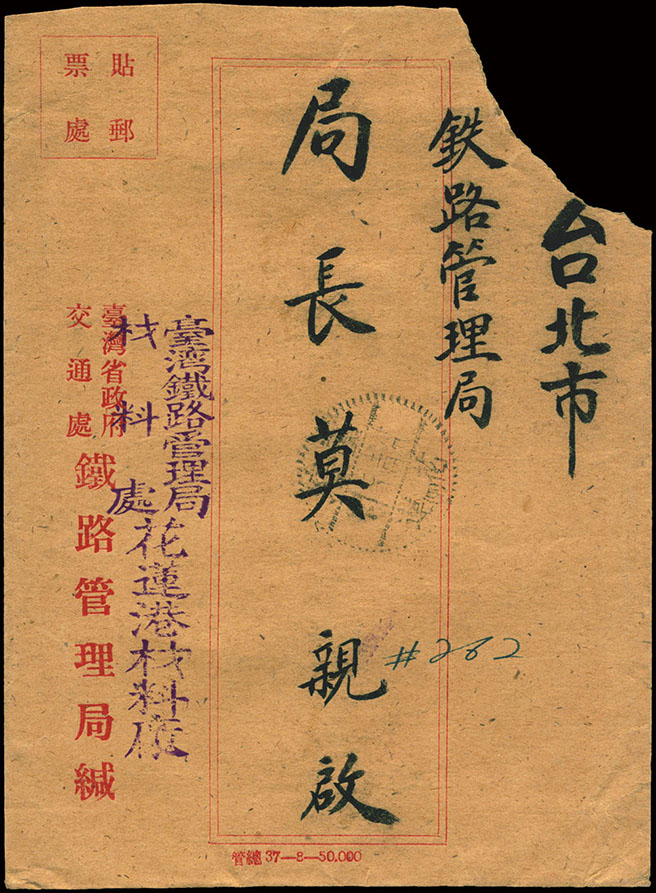 台北市
鉄路管理局
局長莫親啟
#282
貼郵
票處
臺灣鐵路管理局
材料處
花蓮港材料廠
臺灣省政府
交通處
鐵路管理局緘
管總 37—8—50.000